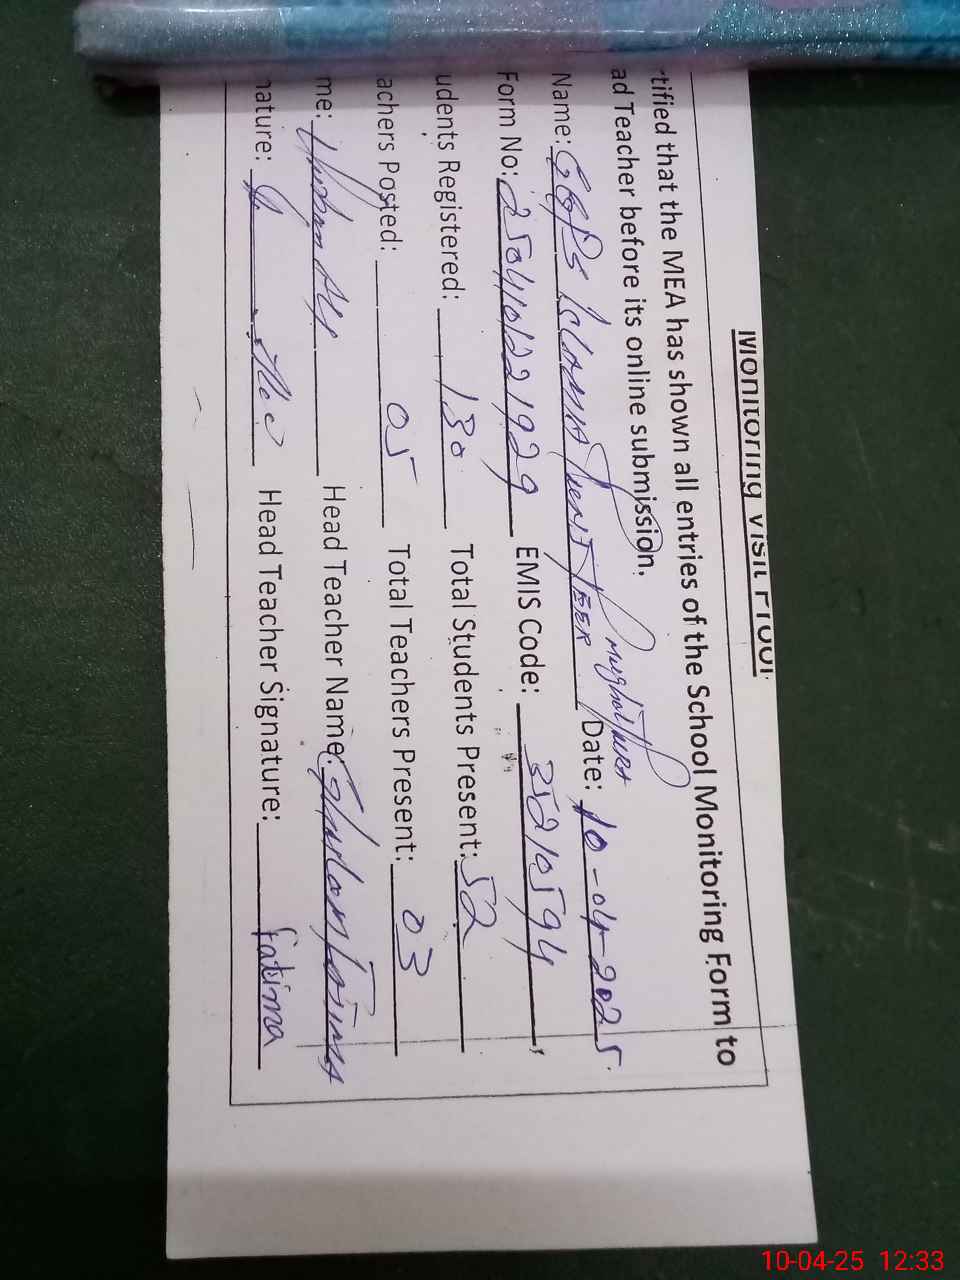 Monitoring Visit Proof
tified that the MEA has shown all entries of the School Monitoring Form to
ad Teacher before its online submission.
Name: GGPS Date: 10-04-2025
Form No: 2504101221929 EMIS Code: 35210594,
udents Registered: 130 Total Students Present: 52
achers Posted: 05 Total Teachers Present: 03
me: Head Teacher Name: Ghulam Fatima
nature: Head Teacher Signature: fatima
10-04-25 12:33